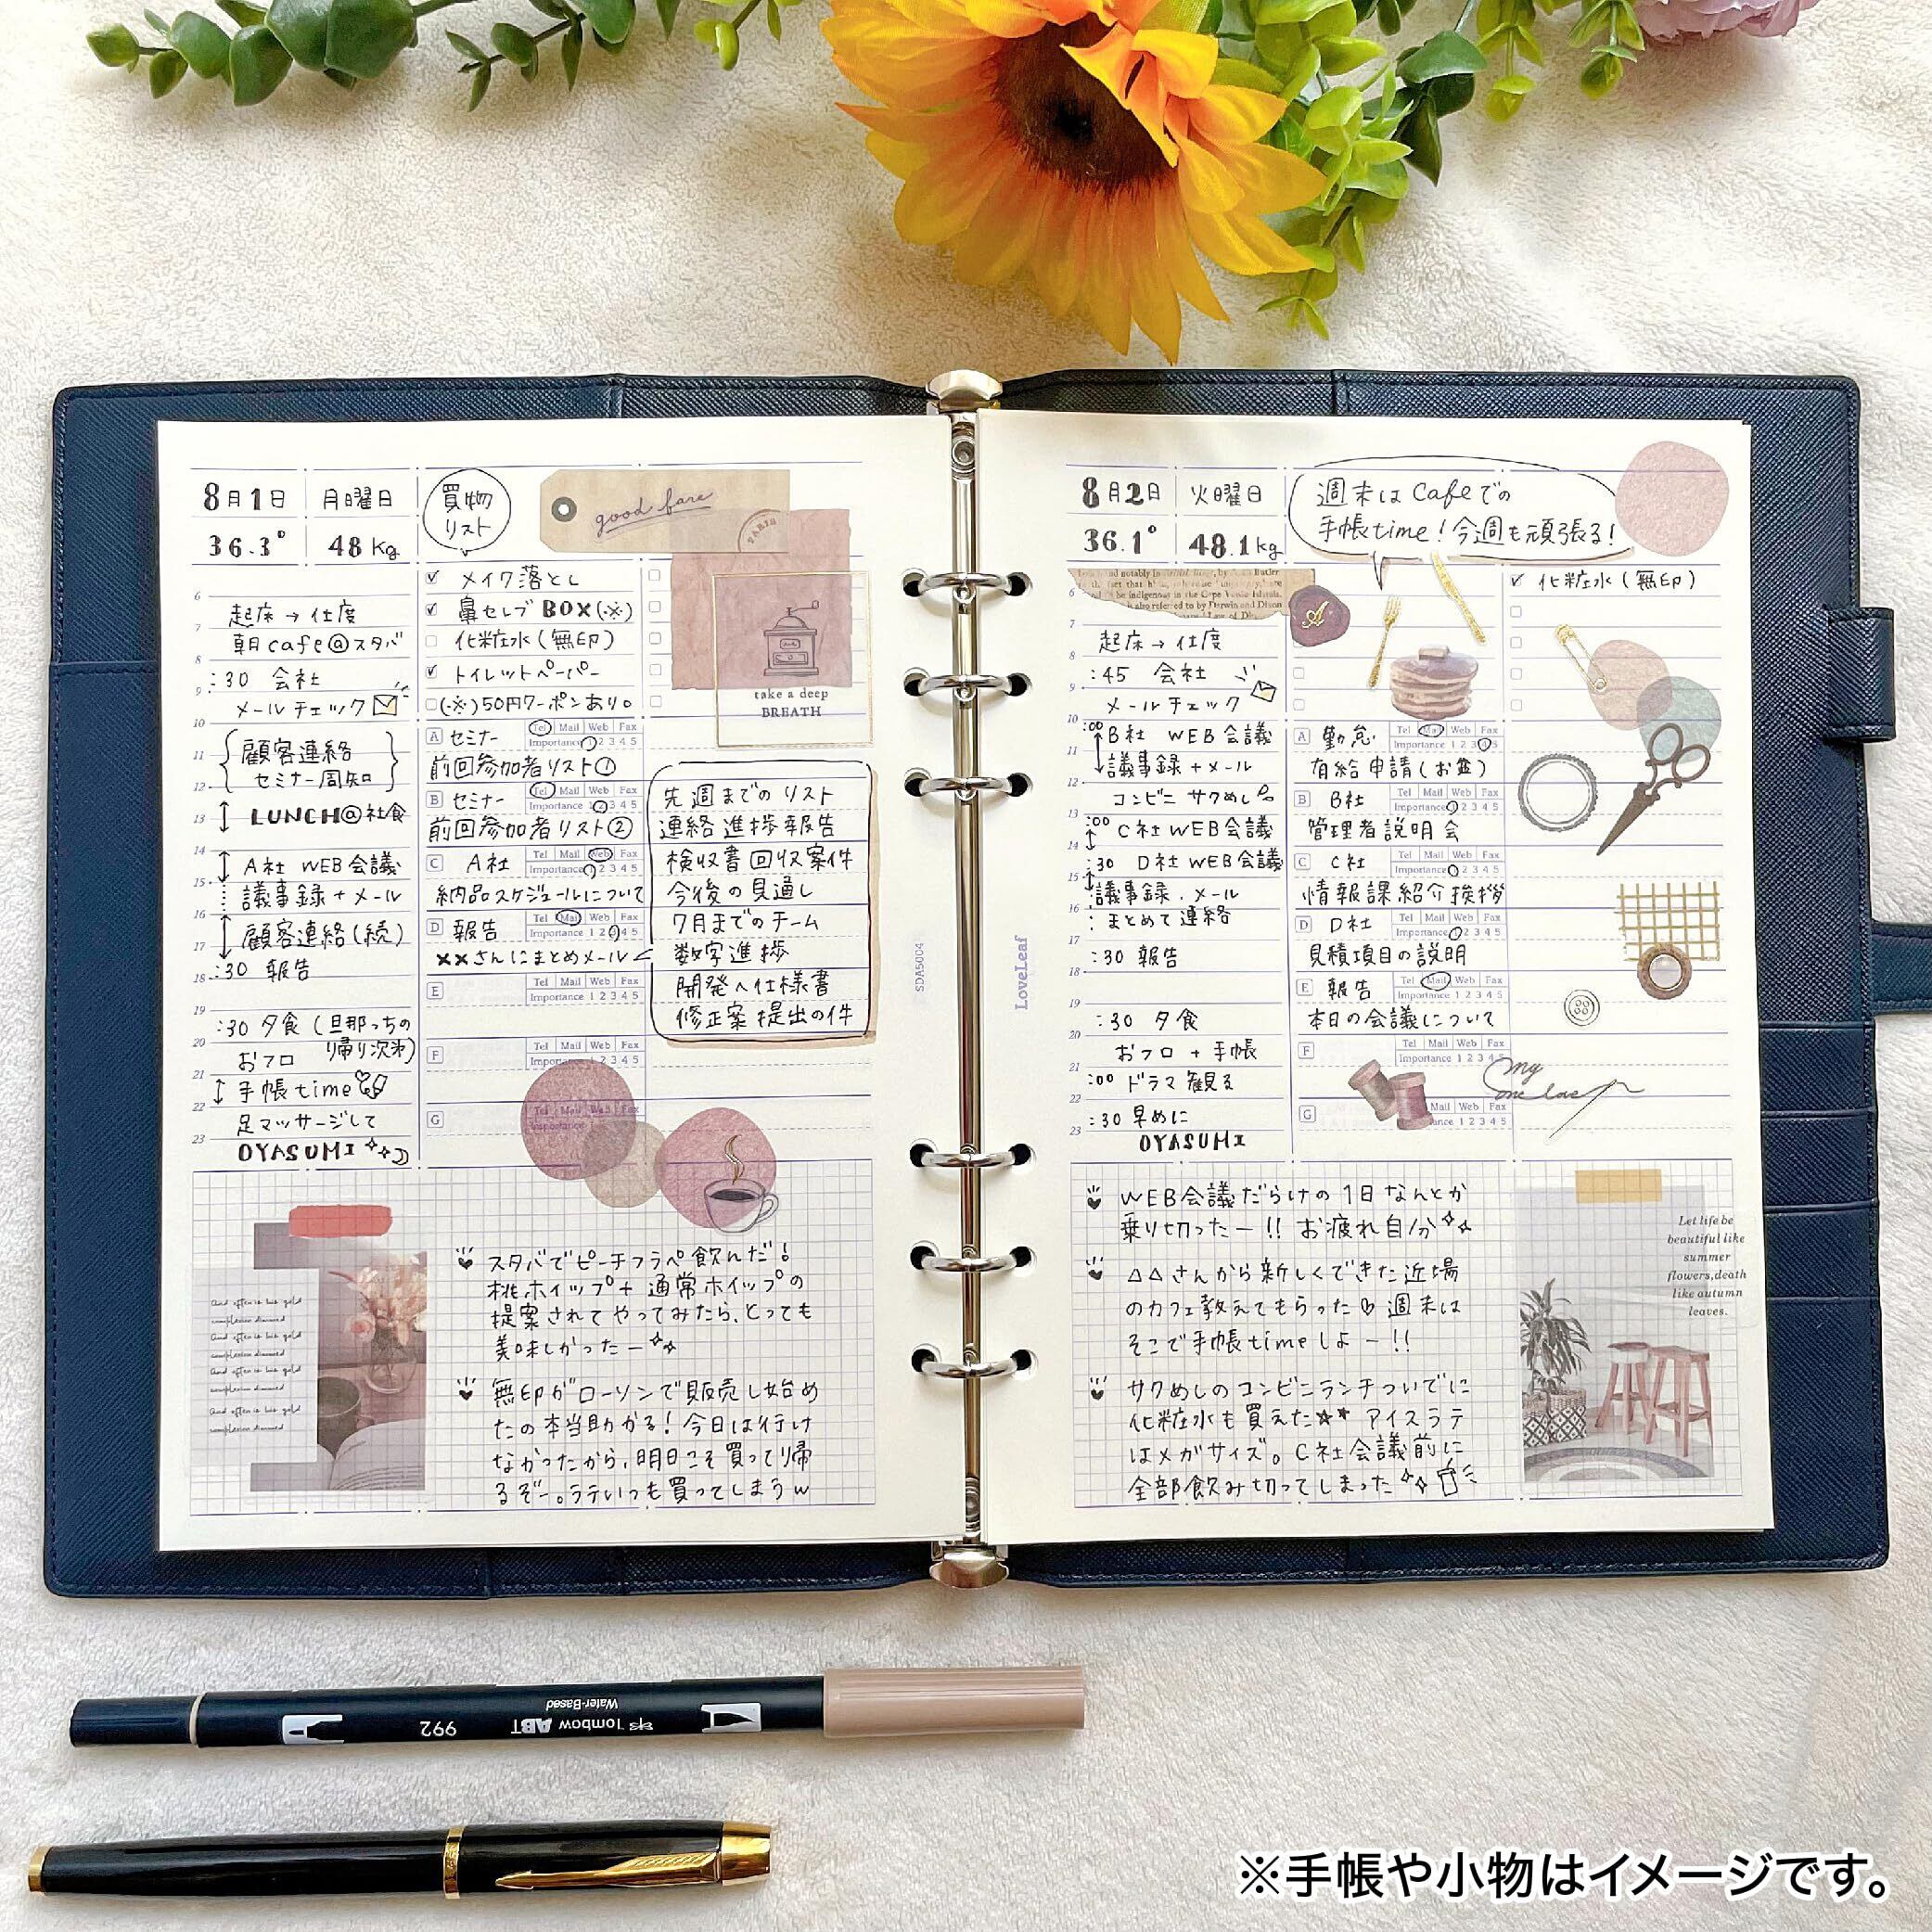 8月1日
月曜日
36.3°
48kg
買物
リスト
good fare
PARIS
take a deep
BREATH
メイク落とし
鼻セレブBOX(※)
化粧水(無印)
トイレットペーパー
(※)50円クーポンあり。
6
7
8
9
10
11
12
13
14
15
16
17
18
19
20
21
22
23
起床→仕度
朝cafe@スタバ
:30 会社
メールチェック
顧客連絡
セミナー周知
LUNCH@社食
A社 WEB会議
議事録+メール
顧客連絡(続)
:30 報告
:30 夕食(旦那っちの
帰り次第)
おフロ
手帳time
足マッサージして
OYASUMI
A セミナー
Tel Mail Web Fax
Importance 1 2 3 4 5
前回参加者リスト①
B セミナー
Tel Mail Web Fax
Importance 1 2 3 4 5
前回参加者リスト②
C A社
Tel Mail Web Fax
Importance 1 2 3 4 5
納品スケジュールについて
D 報告
Tel Mail Web Fax
Importance 1 2 3 4 5
××さんにまとめメール
E
Tel Mail Web Fax
Importance 1 2 3 4 5
F
Tel Mail Web Fax
Importance 1 2 3 4 5
G
Tel Mail Web Fax
Importance
先週までのリスト
連絡進捗報告
検収書回収案件
今後の見通し
7月までのチーム
数字進捗
開発へ仕様書
修正案提出の件
スタバでピーチフラペ飲んだ!
桃ホイップ+通常ホイップの
提案されてやってみたら、とっても
美味しかったー
無印がローソンで販売し始め
たの本当助かる!今日は行け
なかったから、明日こそ買って帰
るぞー。ラテいつも買ってしまうw
SDA5004
LoveLeaf
8月2日
火曜日
36.1°
48.1kg
週末はCafeでの
手帳time!今週も頑張る!
A
化粧水(無印)
6
7
8
9
10
11
12
13
14
15
16
17
18
19
20
21
22
23
起床→仕度
:45 会社
メールチェック
:00 B社 WEB会議
議事録+メール
コンビニ サクめし
:00 C社WEB会議
:30 D社WEB会議
議事録.メール
まとめて連絡
:30 報告
:30 夕食
おフロ+手帳
:00 ドラマ観る
:30 早めに
OYASUMI
A 勤怠
Tel Mail Web Fax
Importance 1 2 3 4 5
有給申請(お盆)
B B社
Tel Mail Web Fax
Importance 1 2 3 4 5
管理者説明会
C C社
Tel Mail Web Fax
Importance 1 2 3 4 5
情報課紹介挨拶
D D社
Tel Mail Web Fax
Importance 1 2 3 4 5
見積項目の説明
E 報告
Tel Mail Web Fax
Importance 1 2 3 4 5
本日の会議について
F
Tel Mail Web Fax
Importance 1 2 3 4 5
G
Mail Web Fax
1 2 3 4 5
WEB会議だらけの1日なんとか
乗り切ったー!!お疲れ自分
△△さんから新しくできた近場
のカフェ教えてもらった♡週末は
そこで手帳timeしよー!!
サクめしのコンビニランチついでに
化粧水も買えた★★ アイスラテ
はメガサイズ。C社会議前に
全部飲み切ってしまった
Let life be
beautiful like
summer
flowers,death
like autumn
leaves.
Tombow ABT
Water-Based
992
※手帳や小物はイメージです。